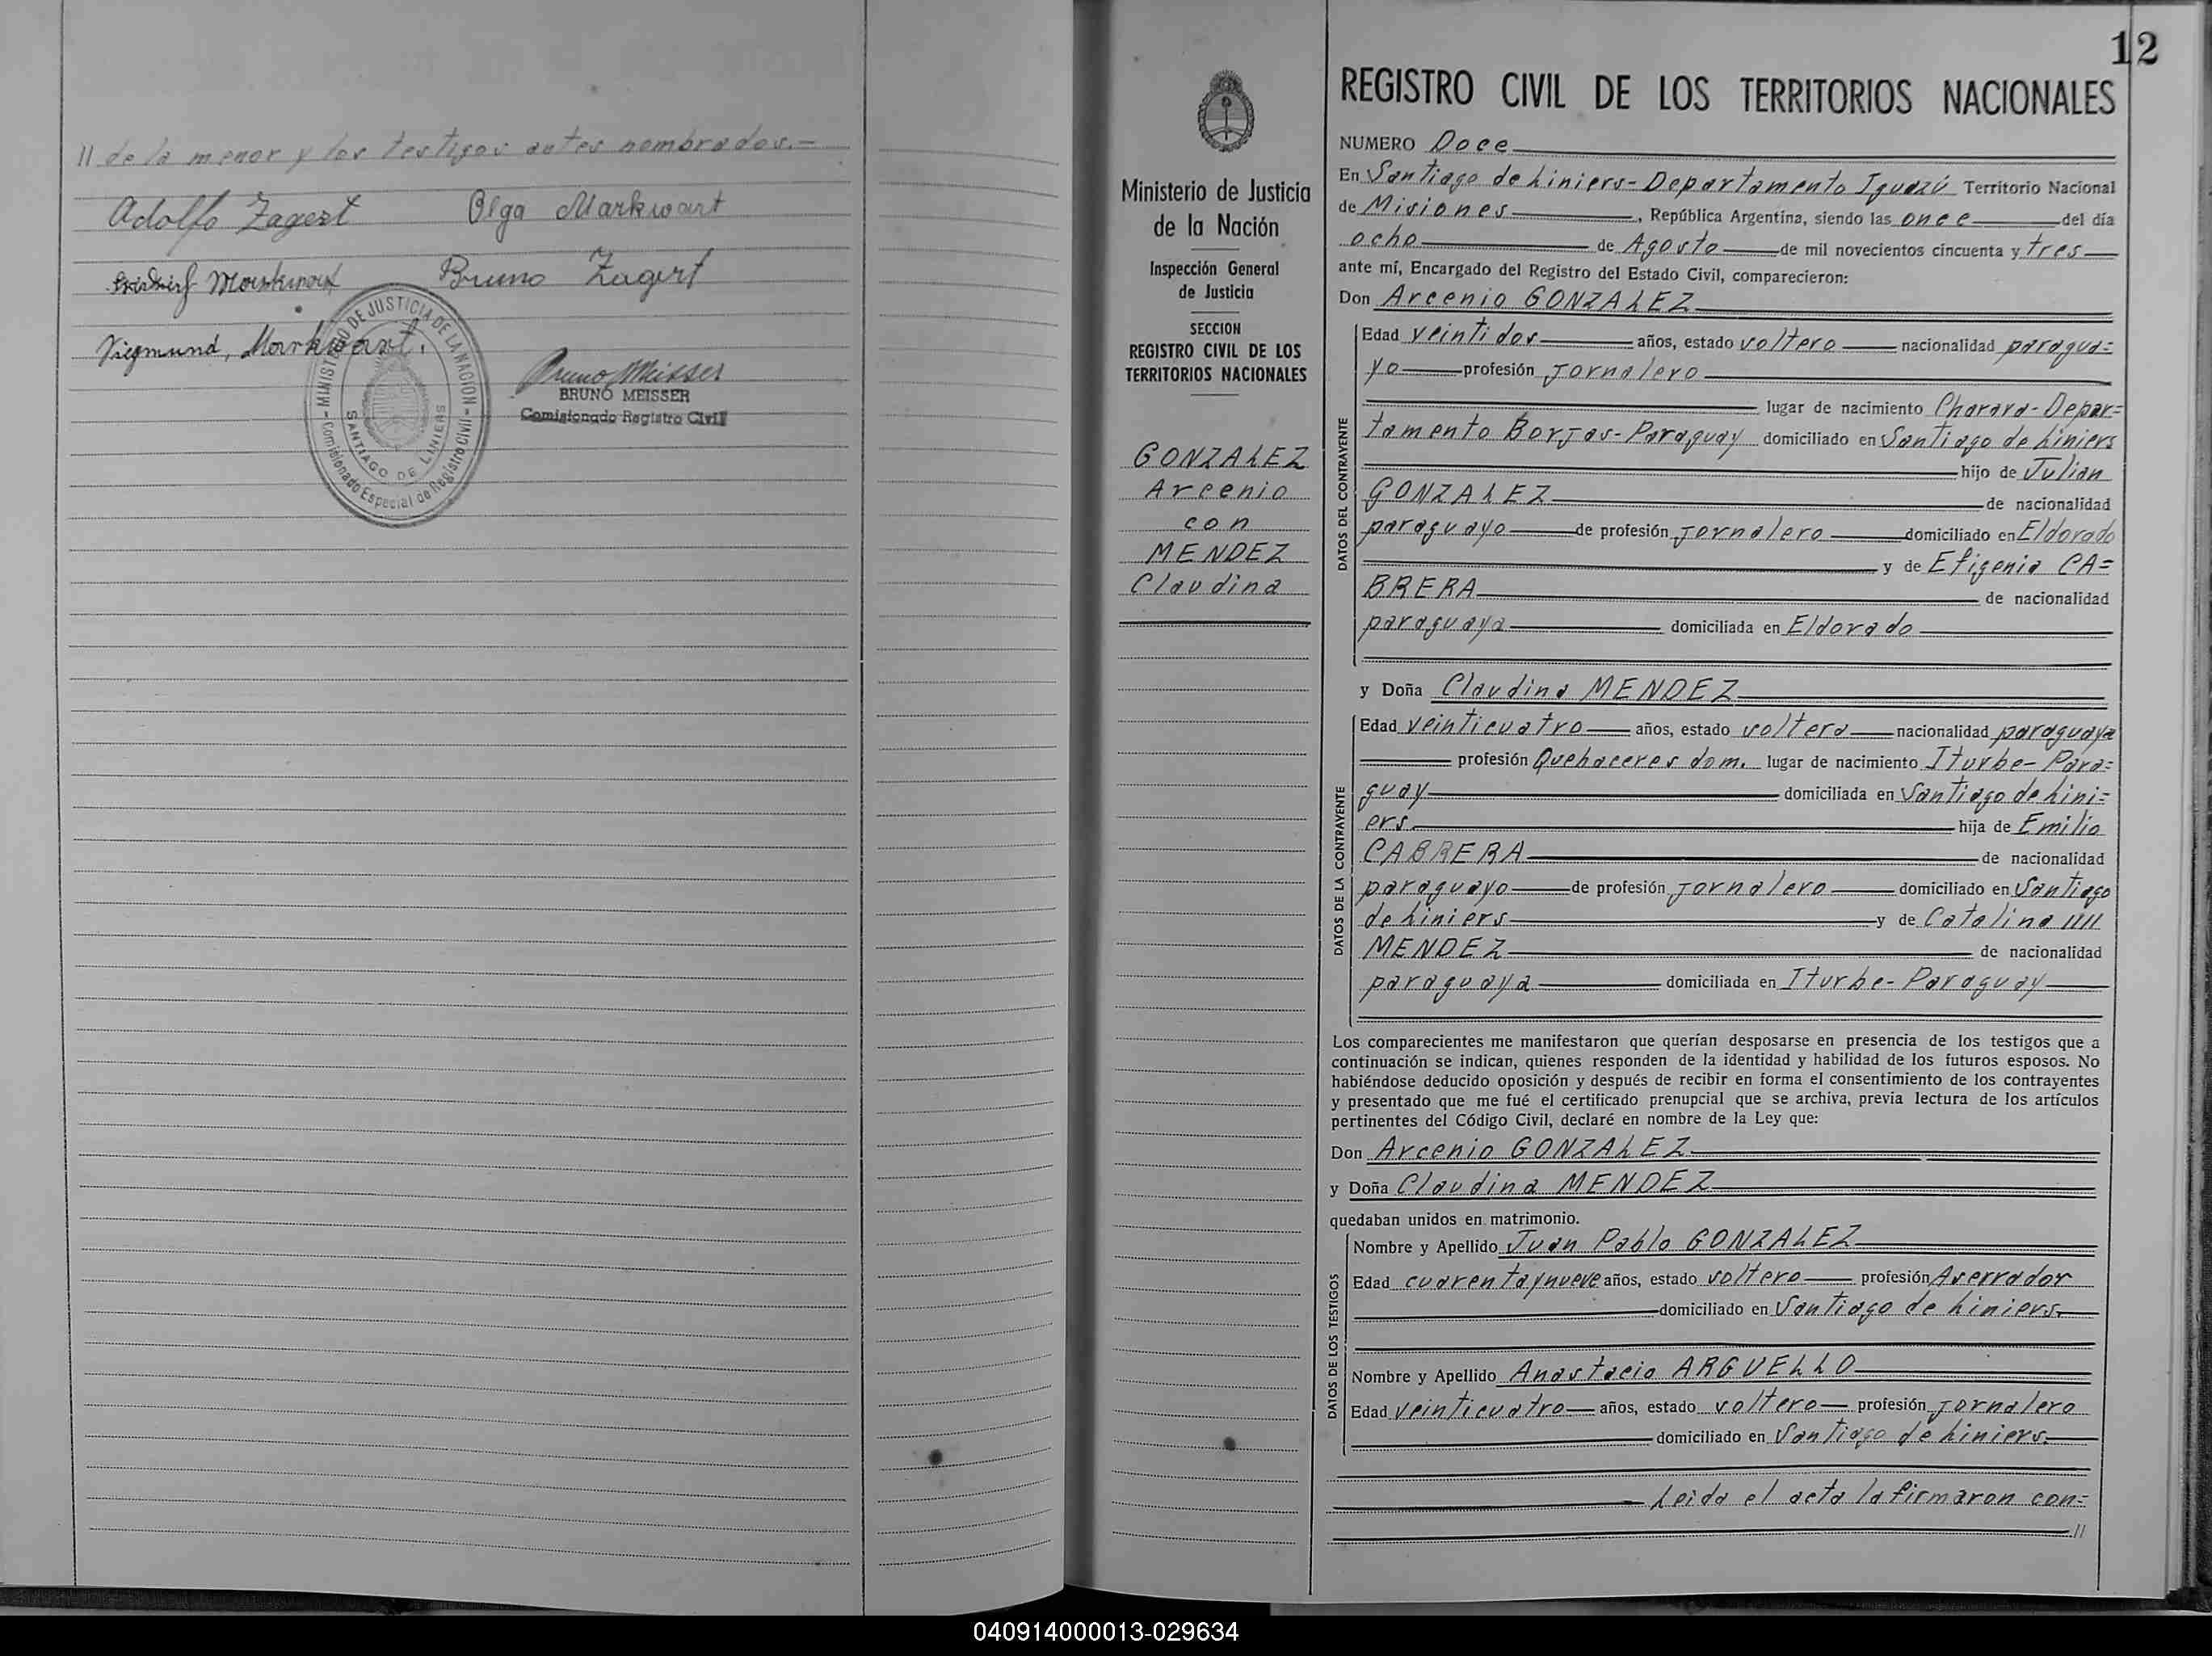 // de la menor y los testigos antes nombrados.-
Adolfo Zagert Olga Markwart
Markwart Bruno Zagert
Siegmund, Markwart.
MINISTERIO DE JUSTICIA DE LA NACION
SANTIAGO DE LINIERS
Comisionado Especial de Registro Civil
Bruno Meisser
BRUNO MEISSER
Comisionado Registro Civil
12
Ministerio de Justicia
de la Nación
Inspección General
de Justicia
SECCION
REGISTRO CIVIL DE LOS
TERRITORIOS NACIONALES
GONZALEZ
Arcenio
con
MENDEZ
Claudina
REGISTRO CIVIL DE LOS TERRITORIOS NACIONALES
NUMERO Doce
En Santiago de Liniers-Departamento Iguazú Territorio Nacional
de Misiones, República Argentina, siendo las once del día
ocho de Agosto de mil novecientos cincuenta y tres
ante mí, Encargado del Registro del Estado Civil, comparecieron:
Don Arcenio GONZALEZ
DATOS DEL CONTRAYENTE
Edad veintidos años, estado soltero nacionalidad paragua=
yo profesión Jornalero
lugar de nacimiento Charara-Depar=
tamento Borjas-Paraguay domiciliado en Santiago de Liniers
hijo de Julian
GONZALEZ de nacionalidad
paraguayo de profesión Jornalero domiciliado en Eldorado
y de Efigenia CA=
BRERA de nacionalidad
paraguaya domiciliada en Eldorado
y Doña Claudina MENDEZ
DATOS DE LA CONTRAYENTE
Edad veinticuatro años, estado soltera nacionalidad paraguaya
profesión Quehaceres dom. lugar de nacimiento Iturbe-Para=
guay domiciliada en Santiago de Lini=
ers. hija de Emilio
CABRERA de nacionalidad
paraguayo de profesión Jornalero domiciliado en Santiago
de Liniers y de Catalina ////
MENDEZ de nacionalidad
paraguaya domiciliada en Iturbe-Paraguay
Los comparecientes me manifestaron que querían desposarse en presencia de los testigos que a
continuación se indican, quienes responden de la identidad y habilidad de los futuros esposos. No
habiéndose deducido oposición y después de recibir en forma el consentimiento de los contrayentes
y presentado que me fué el certificado prenupcial que se archiva, previa lectura de los artículos
pertinentes del Código Civil, declaré en nombre de la Ley que:
Don Arcenio GONZALEZ
y Doña Claudina MENDEZ
quedaban unidos en matrimonio.
DATOS DE LOS TESTIGOS
Nombre y Apellido Juan Pablo GONZALEZ
Edad cuarentaynueve años, estado soltero profesión Aserrador
domiciliado en Santiago de Liniers.
Nombre y Apellido Anastacio ARGUELLO
Edad veinticuatro años, estado soltero profesión Jornalero
domiciliado en Santiago de Liniers.
Leida el acta la firmaron con=
//
040914000013-029634